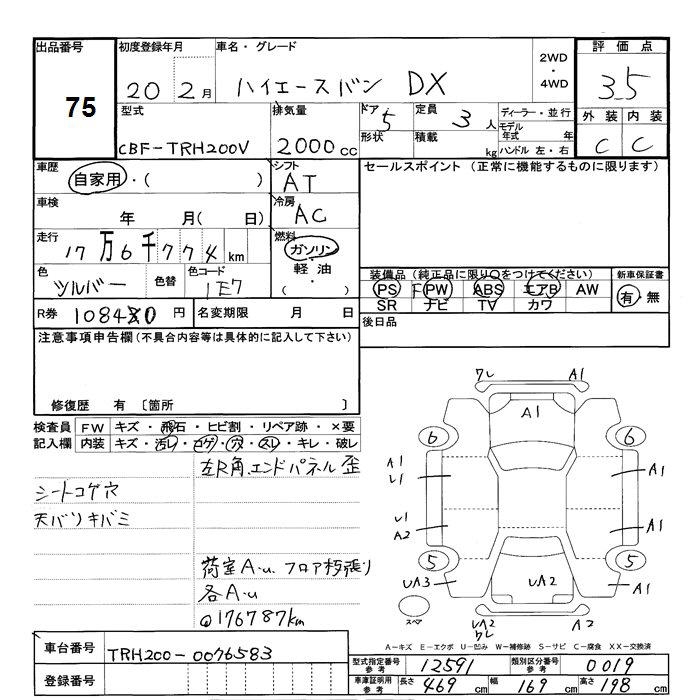 出品番号 75
初度登録年月 20 2月
車名・グレード ハイエースバン DX
2WD・4WD
評価点 3.5
外装 C 内装 C
型式 CBF-TRH200V
排気量 2000cc
ドア 5 形状
定員 3人 積載 kg
ディーラー・並行
モデル年式 年
ハンドル 左・右
車歴 自家用・( )
シフト AT
セールスポイント (正常に機能するものに限ります)
車検 年 月( 日)
冷房 AC
走行 17万6千774km
燃料 ガソリン・軽油・( )
色 シルバー 色替 色コード 1E7
装備品 (純正品に限り○をつけてください)
PS PW ABS エアB AW
SR ナビ TV カワ
新車保証書 有・無
R券 108480円 名変期限 月 日
後日品
注意事項申告欄 (不具合内容等は具体的に記入して下さい)
修復歴 有 〔箇所 〕
検査員記入欄
FW キズ・飛石・ヒビ割・リペア跡・×要
内装 キズ・汚レ・コゲ・穴・スレ・キレ・破レ
左R角、エンドパネル歪
シートコゲ穴
天バリキバミ
荷室A・u. フロア朽張り
各A・u
@176787km
ワレ A1
A1
6 6
A1 U1 A1
U1 A2 A1
5 5
UA3 UA2 A1
スペア UA2 ワレ A2
A-キズ E-エクボ U-凹み W-補修跡 S-サビ C-腐食 XX-交換済
車台番号 TRH200-0076583
登録番号
型式指定番号 参考 12591 類別区分番号 参考 0019
車庫証明用 参考 長さ 469cm 幅 169cm 高さ 198cm